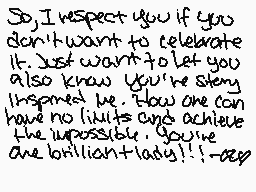 So, I respect you if you
don't want to celebrate
it. Just want to let you
also know you're story
inspired me. How one can
have no limits and achieve
the impossible. You're
one brilliant lady!!!-